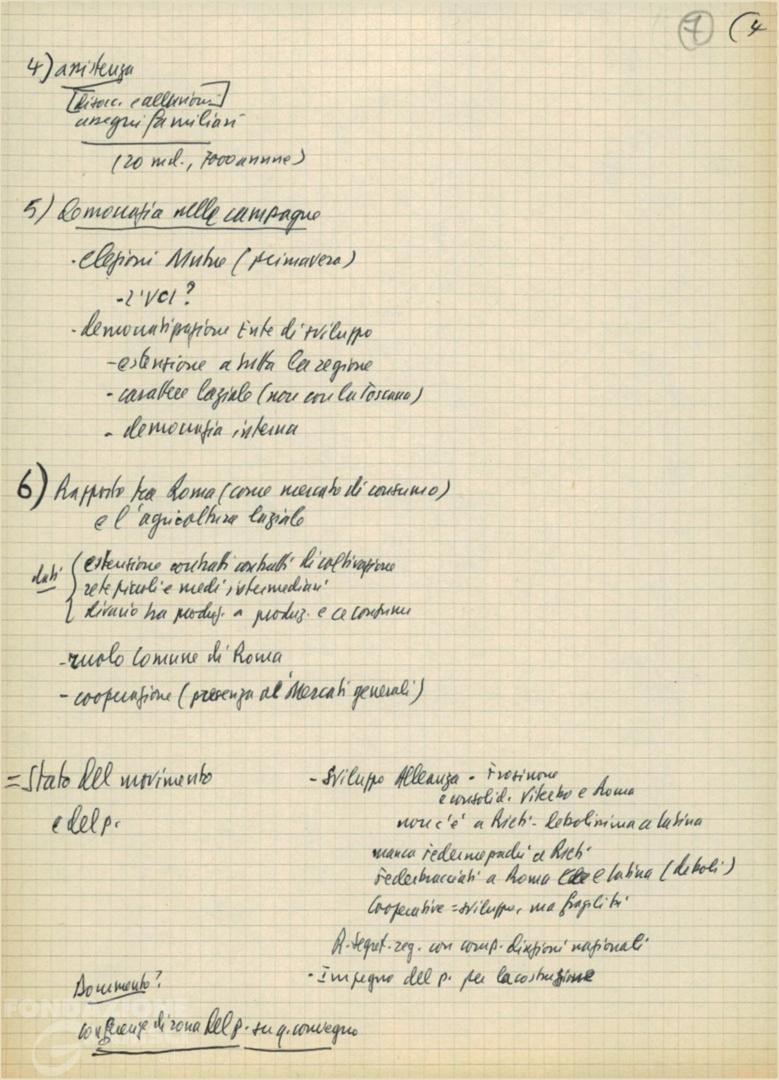 7 (4
4) assistenza
[disocc. e alluvioni]
assegni familiari
(20 md., 7000 annue)
5) Democrazia nelle campagne
- elezioni Mutue (primavera)
- L'VCI?
- democratizzazione Ente di sviluppo
- estensione a tutta la regione
- carattere laziale (non con la Toscana)
- democrazia interna
6) Rapporto tra Roma (come mercato di consumo)
e l'agricoltura laziale
dati { estensione contratti contratti di coltivazione
rete piccoli e medi intermediari
divario tra prod. a produz. e al consumo
- ruolo Comune di Roma
- cooperazione (presenza ai Mercati generali)
= Stato del movimento
e del p.
- Sviluppo Alleanza - Frosinone
e consolid. Viterbo e Roma
non c'è a Rieti - debolissima a Latina
manca Federmezzadri a Rieti
Federbraccianti a Roma e Latina (deboli)
Cooperative = sviluppo, ma fragilità
R. segret. reg. con comp. direzioni nazionali
- Impegno del p. per la costruzione
Documento?
conferenze di zona del p. su q. convegno
FONDAZIONE